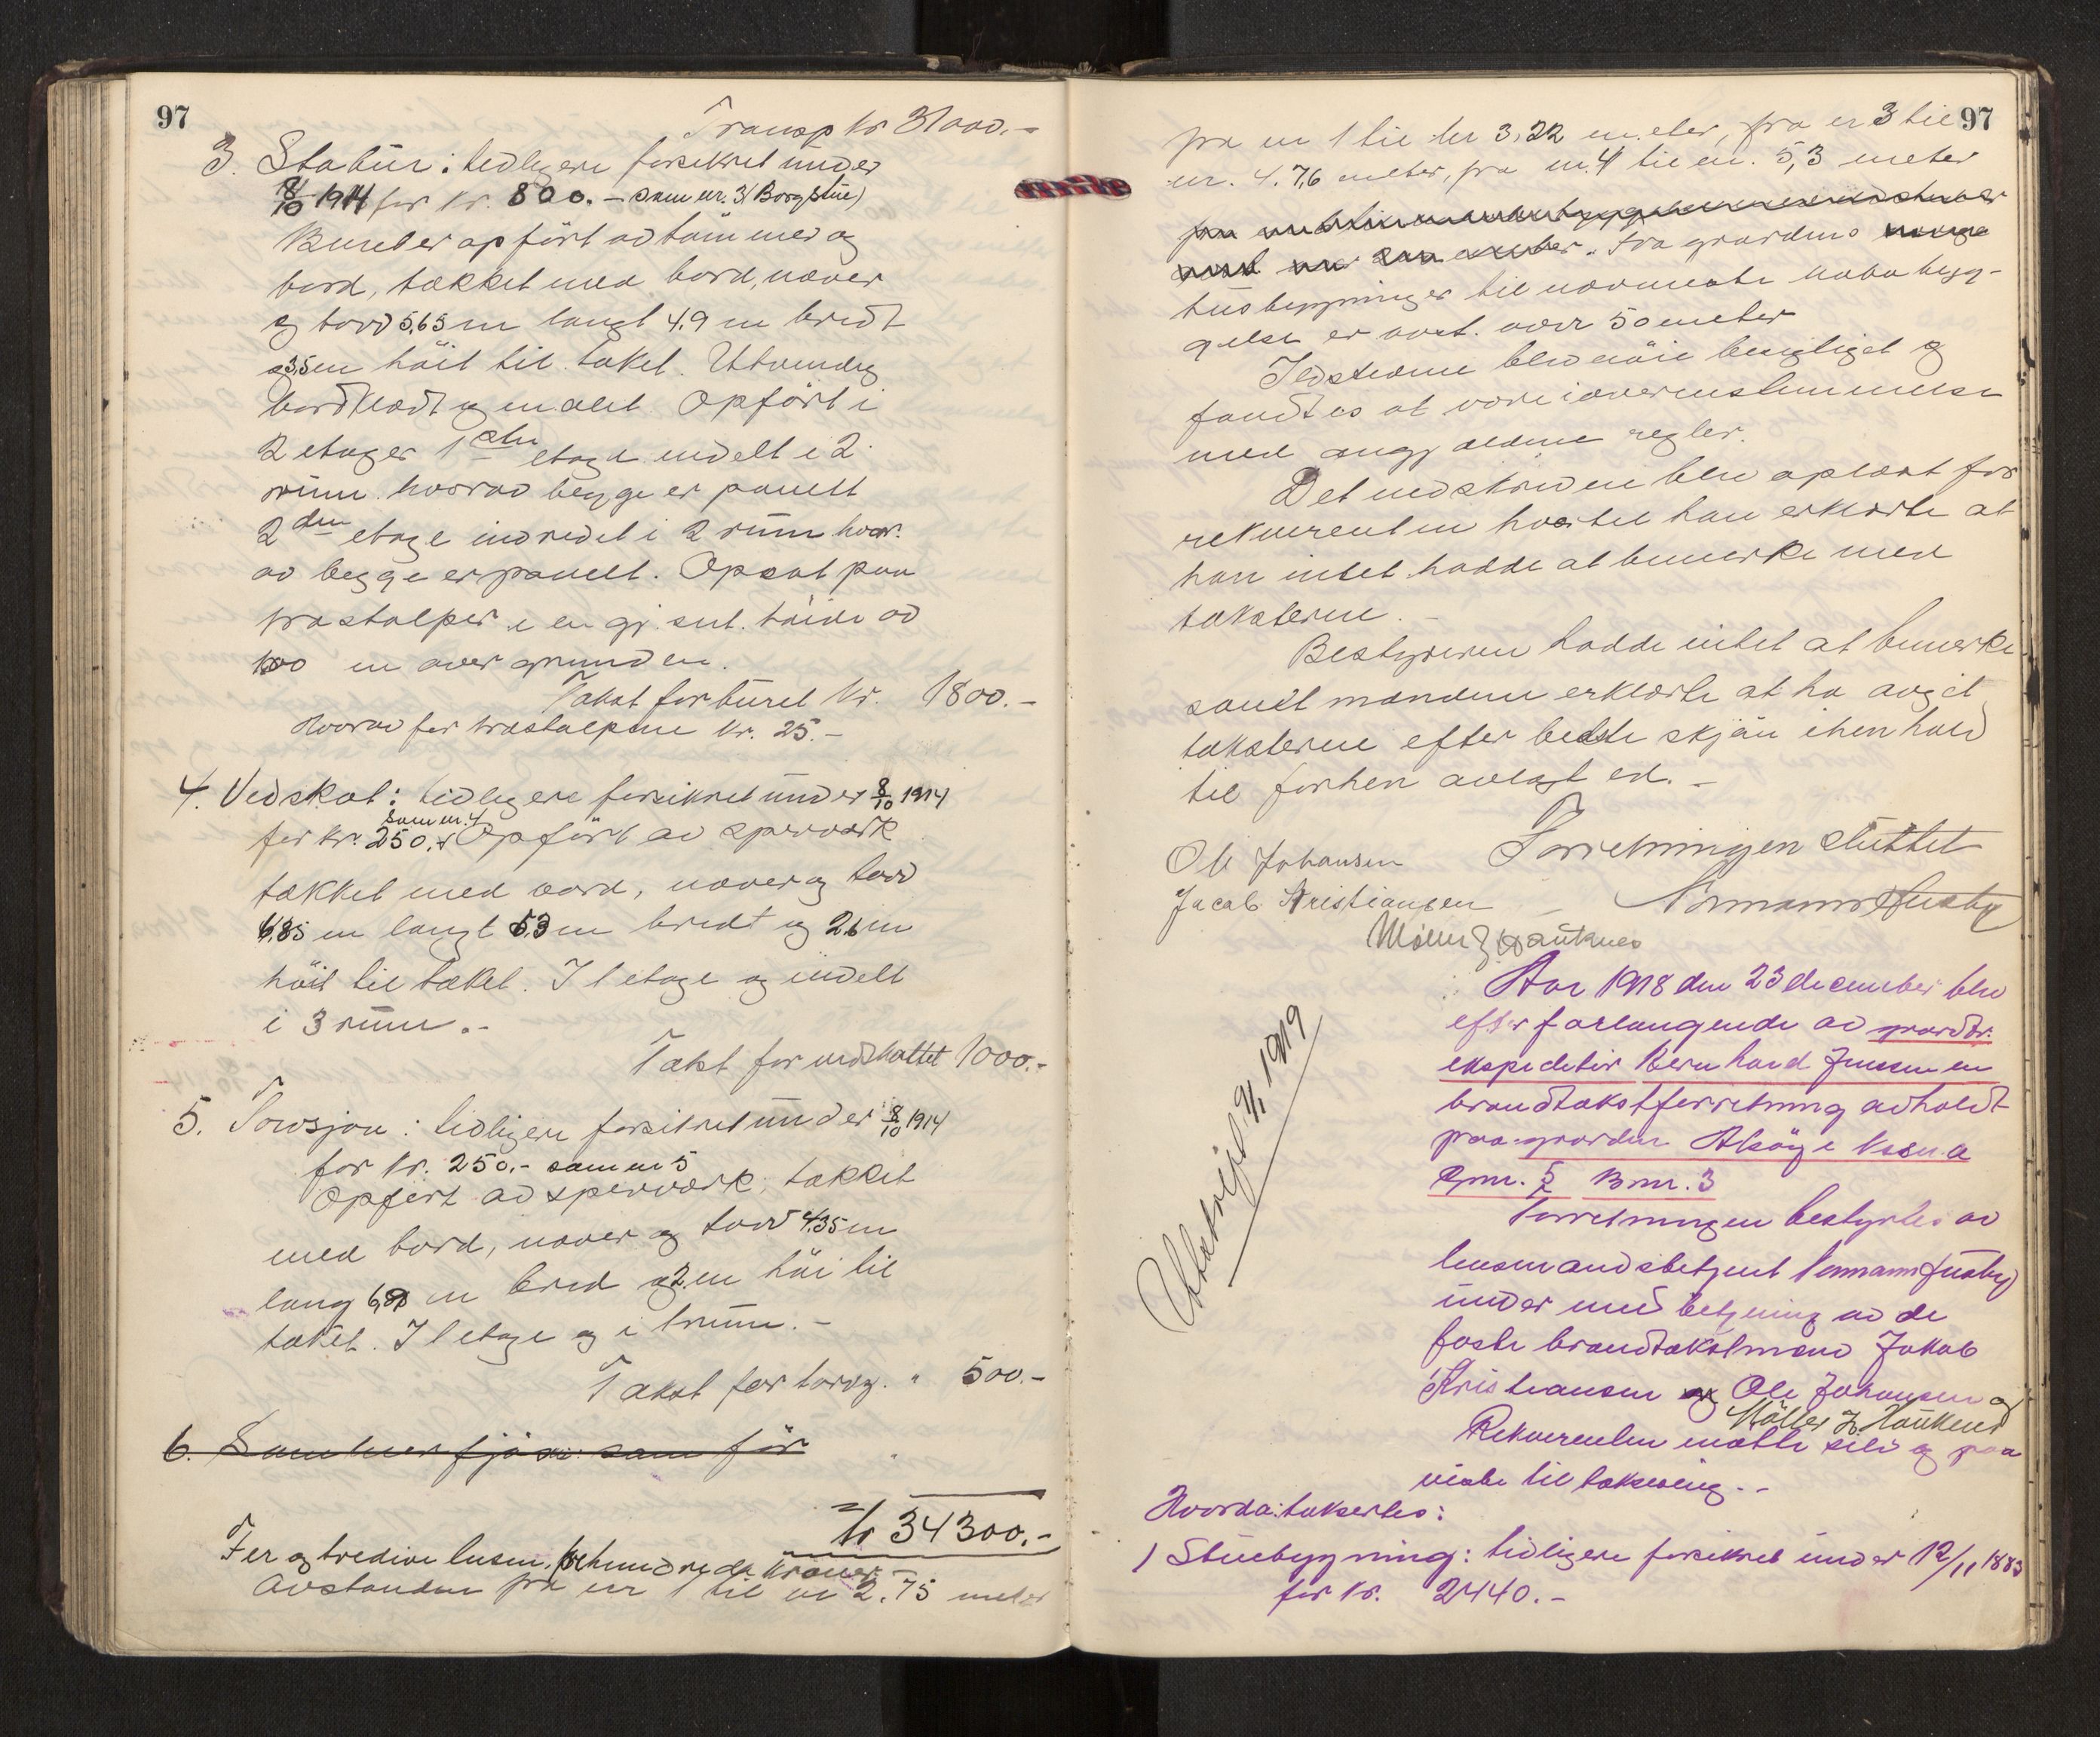 97
Transp kr 31000.-
3. Stabur: tidligere forsikret under
8/10 1914 for kr. 800.- som nr. 3 (Borgstue)
Buret er opført av tømmer og
bord, tækket med bord, næver
og torv 5,65 m langt 4,9 m bredt
og 3,5 m høit til taket. Utvendig
bordklædt og malet. Opført i
2 etager 1ste etage indelt i 2
rum hvorav begge er panelt
2den etage indredet i 2 rum hvor.
av begge er panelt. Opsat paa
træstolper i en gj. snt. høide av
1,00 m over grunden.
Takst for buret kr. 1800.-
Hvorav for træstolpene kr. 25.-
4. Vedskot: tidligere forsikret under 8/10 1914
for kr. 250.- som nr. 4 Opført av sperværk
tækket med bord, næver og torv
6,85 m langt 5,3 m bredt og 2,6 m
høit til taket. I 1 etage og indelt
i 3 rum.-
Takst for vedskottet 1000.-
5. Torvsjøn: tidligere forsikret under 8/10 1914
for kr. 250.- som nr 5
Opført av sperværk, tækket
med bord, næver og torv 4,35 m
lang 6,8 m bred og 2 m høi til
taket. I 1 etage og i 1 rum.-
Takst for torvsj. " 500.-
6. Sommerfjøs: som før
= kr 34300.-
Fer og tredive tusen, trehundrede kroner -
Avstanden fra nr 1 til nr 2. 75 meter
97
fra nr 1 til nr 3. 22 meter, fra nr 3 til
nr. 4. 7,6 meter, fra nr. 4 til nr. 5, 3 meter
Fra gaardens
husbygninger til nærmeste nabobygg-
gelse er avst. over 50 meter
Ildstederne blev nøie besigtiget og
fandtes at være i overensstemmelse
med angjældende regler.
Det nedskrevne blev oplæst for
rekvirenten hvortil han erklærte at
han intet hadde at bemerke med
taksterne.
Bestyreren hadde intet at bemerke
samt mændene erklærte at ha avgit
taksterne efter bedste skjøn i henhold
til forhen avlagt ed.-
Forretningen sluttet
Ole Johansen
Jacob Kristiansen
Normann Husby
Møller J Hauknes
Utskrevet 9/1 1919
Aar 1918 den 23 december blev
efter forlangende av gaardbr.
ekspeditør Bernhard Jenssen en
brandtakstforretning avholdt
paa gaarden Alsøye
Gnr. 5 Bnr. 3
Forretningen bestyrtes av
lensmandsbetjent Normann Husby
under med betjening av de
faste brandtakstmænd Jakob
Kristiansen og Ole Johansen og
Møller J. Hauknes
Rekvirenten møtte selv og paa
viste til taksering.-
Hvorda taksertes:
1 Stuebygning: tidligere forsikret under 12/11 1883
for kr. 2440.-